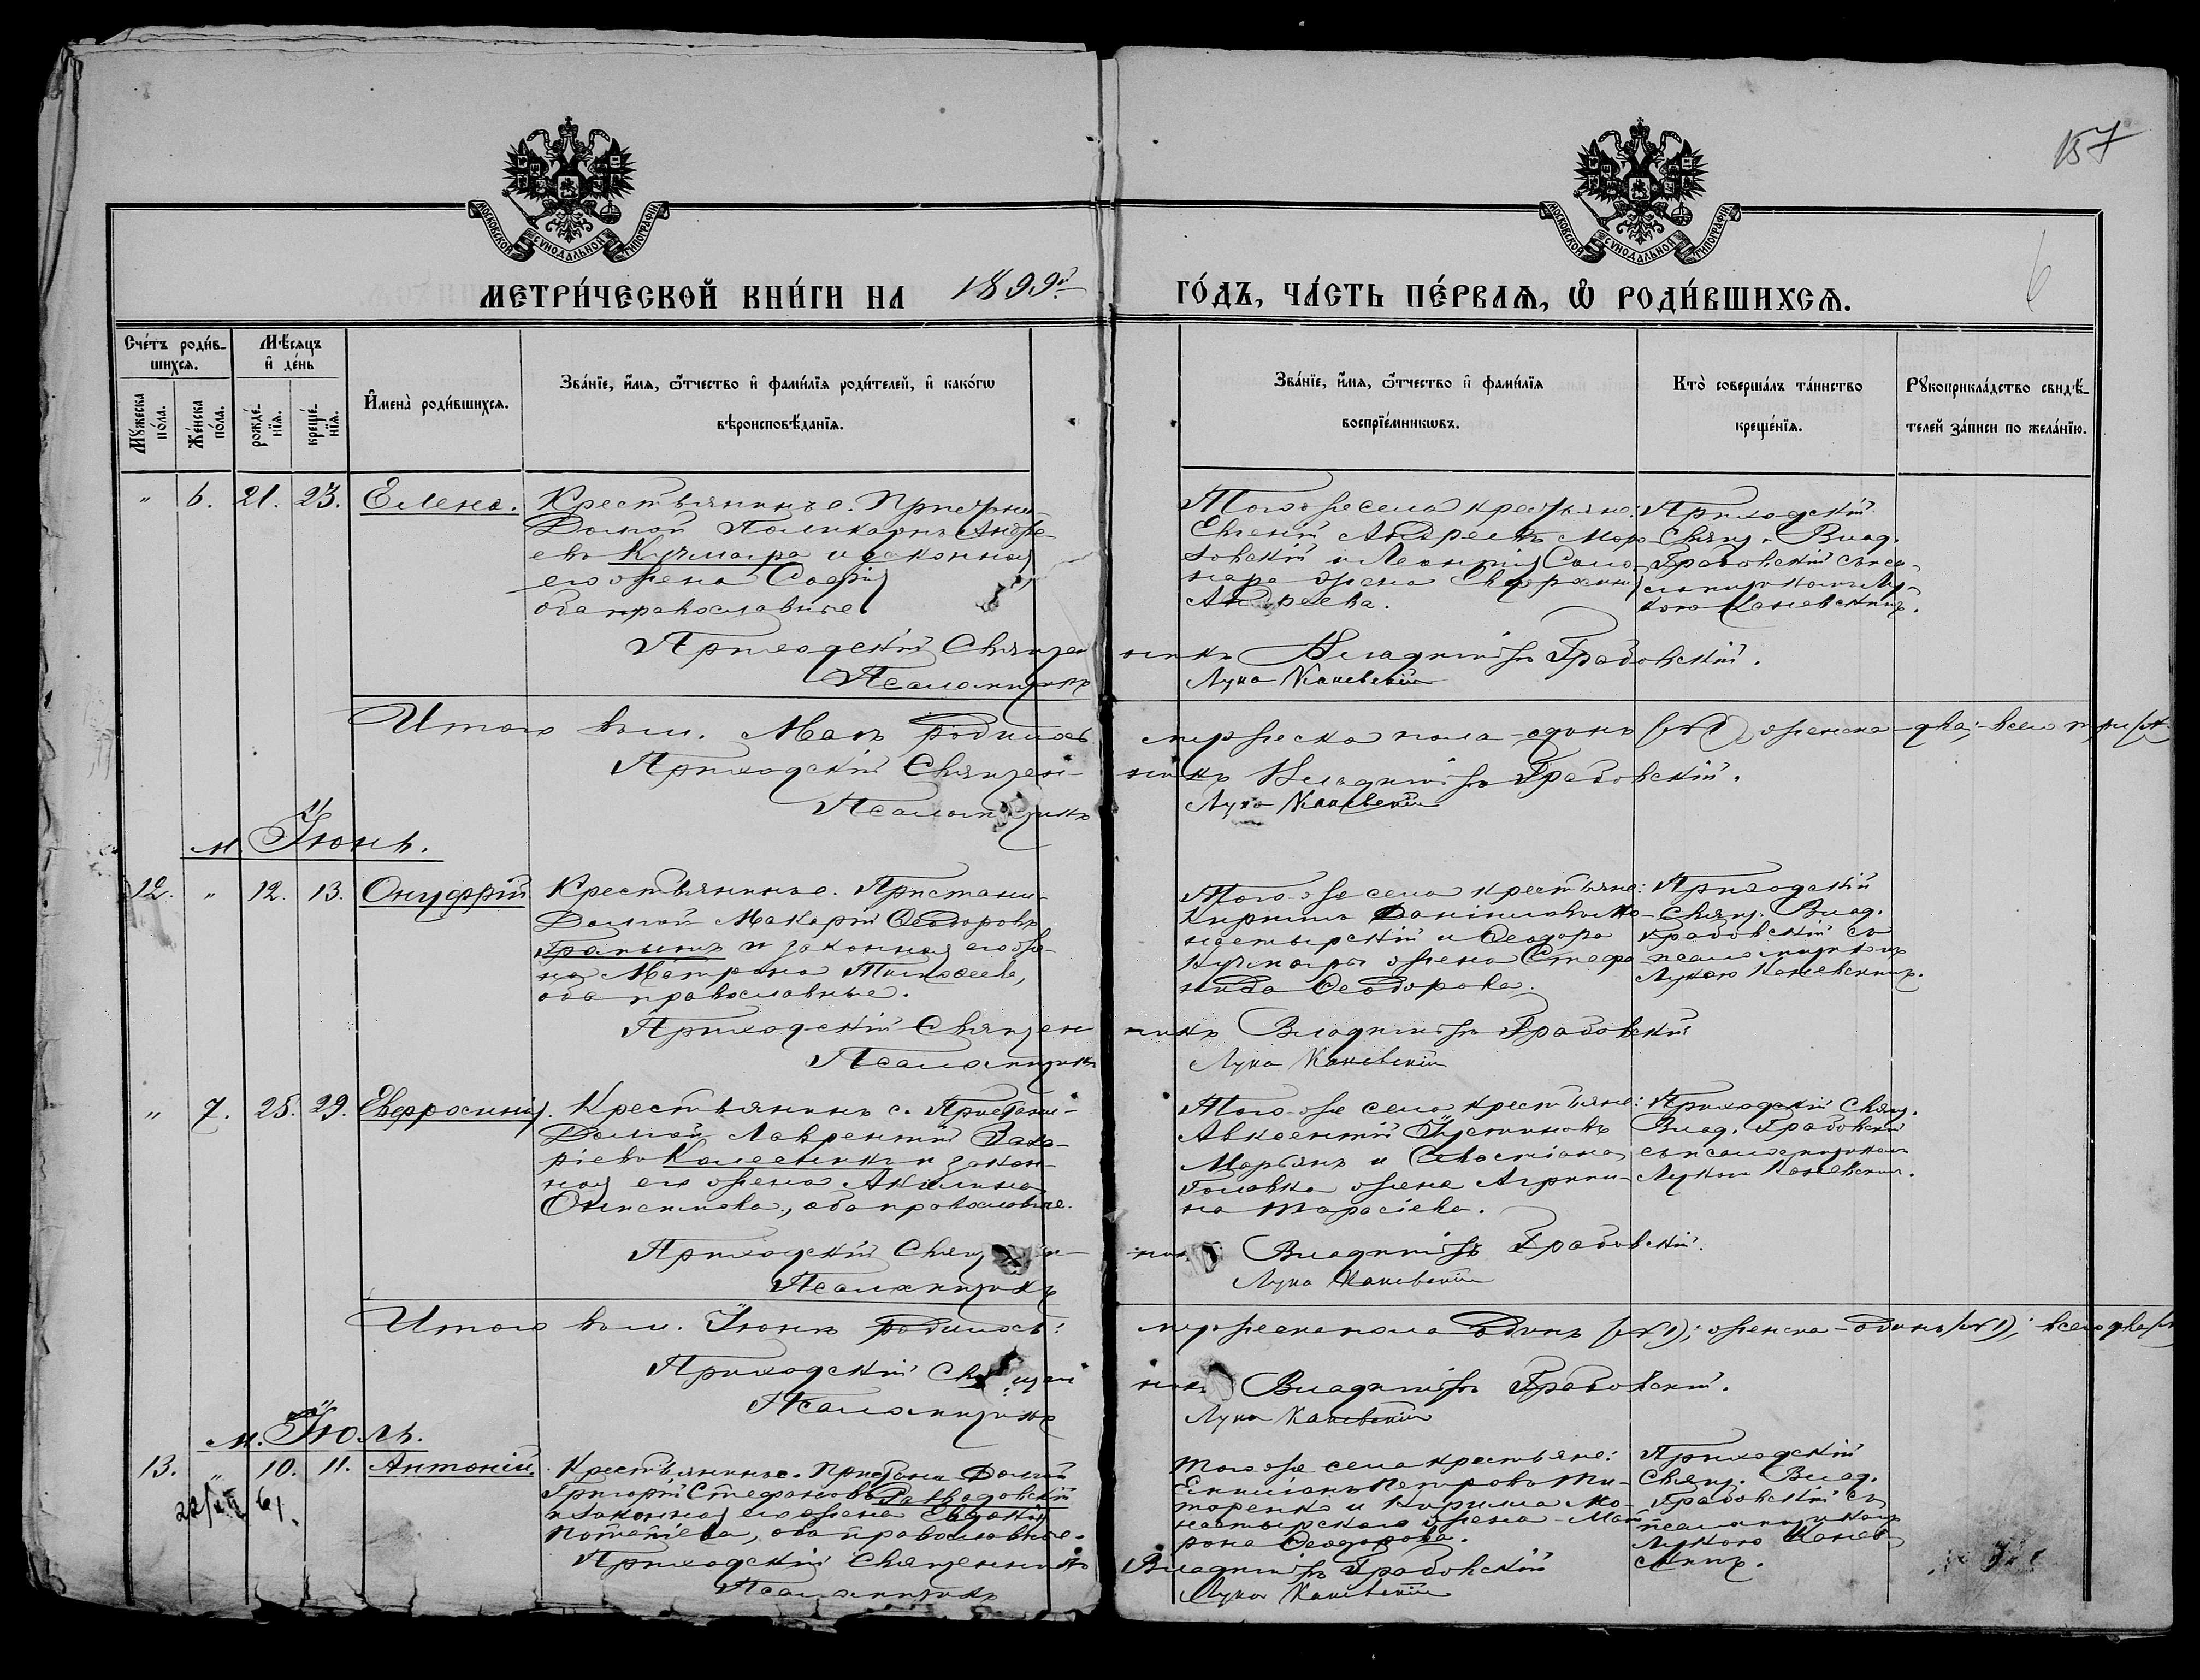 157
6
МОСКОВСКОЙ СѴНОДАЛЬНОЙ ТИПОГРАФІИ
МОСКОВСКОЙ СѴНОДАЛЬНОЙ ТИПОГРАФІИ
МЕТРИ́ЧЕСКОЙ КНИ́ГИ НА 1899й
ГО́ДЪ, ЧА́СТЬ ПЕ́РВАѦ, Ѡ҆ РОДИ́ВШИХСѦ.
Сче́тъ роди́в-
шихсѧ.
Мꙋжеска по́ла.
Же́нска по́ла.
Мѣ́сѧцъ
и҆ де́нь
рожде́-нїѧ.
креще́-нїѧ.
И҆мена̀ роди́вшихсѧ.
Зва́нїе, и҆́мѧ, ѻ҆́тчество и҆ фами́лїѧ роди́телей, и҆ како́гѡ
вѣроисповѣ́данїѧ.
Зва́нїе, и҆́мѧ, ѻ҆́тчество и҆ фами́лїѧ
воспрїе́мникѡвъ.
Кто̀ соверша́лъ та́инство
креще́нїѧ.
Рꙋкоприкла́дство свидѣ́-
телей за́писи по жела́нїю.
" 6. 21. 23. Елена.
Крестьянинъ с. Пристани-
Долгой Поликарпъ Андре-
евъ Кучмагра и законная
его жена Софія
оба православные
Того же села крестьяне:
Евгеній Андреевъ Мор-
ковскій и Леонтія Соло-
жена
Андреева.
Приходскій
Свящ. Влад.
Грабовскій съ пса-
ломщикомъ Лу-
кою Каневскимъ.
Приходскій Священ
никъ Владиміръ Грабовскій.
Псаломщикъ
Лука Каневскій
Итого въ м. Маѣ родилось
мужеска пола - одинъ (№1) женска - два; - всего три
Приходскій Священ-
никъ Владиміръ Грабовскій.
Псаломщикъ
Лука Каневскій
м. Іюнь.
12. " 12. 13. Онуфрій
Крестьянинъ с. Пристани-
Долгой Макарій Ѳеодоровъ
и законная его же-
на Матрона Тимоѳеева,
оба православные.
Того-же села крестьяне:
Кириллъ Даніиловъ Мо-
настырскій и Ѳеодора
Кучмагры жена Стефа-
нида Ѳеодорова.
Приходскій
Свящ. Влад.
Грабовскій съ
псаломщикомъ
Лукою Каневскимъ.
Приходскій Священ
никъ Владиміръ Грабовскій
Псаломщикъ
Лука Каневскій
" 7. 25. 29. Евфросинія.
Крестьянинъ с. Пристани-
Долгой Лаврентій Заха-
ріевъ Колесникъ и закон-
ная его жена Акилина
Онисимова, оба православные.
Того-же села крестьяне:
Авксентій Іустиновъ
Марьянъ и Севастіана
Головка жена Агрипи-
на Тарасіева.
Приходскій Свящ.
Влад. Грабовскій
съ псаломщикомъ
Лукою Каневскимъ.
Приходскій Священ-
никъ Владиміръ Грабовскій.
Псаломщикъ
Лука Каневскій
Итого въ м. Іюнѣ родилось:
мужеска пола - одинъ (№1); женска - одинъ (№1); всего два
Приходскій Священ
никъ Владиміръ Грабовскій.
Псаломщикъ
Лука Каневскій
м. Іюль.
13. " 10. 11. Антоній.
22/XII 61.
Крестьянинъ с. Пристани Долгой
Григорій Стефановъ Развадовскій
и законная его жена Евдокія
Потапіева, оба православные.
Того же села крестьяне:
Емиліанъ Петровъ Ти-
таренко и Кирилла Мо-
настырскаго жена - Мат-
рона Ѳеодорова.
Приходскій
Свящ. Влад.
Грабовскій съ
псаломщикомъ
Лукою Канев-
скимъ.
Приходскій Священникъ
Владиміръ Грабовскій
Псаломщикъ
Лука Каневскій